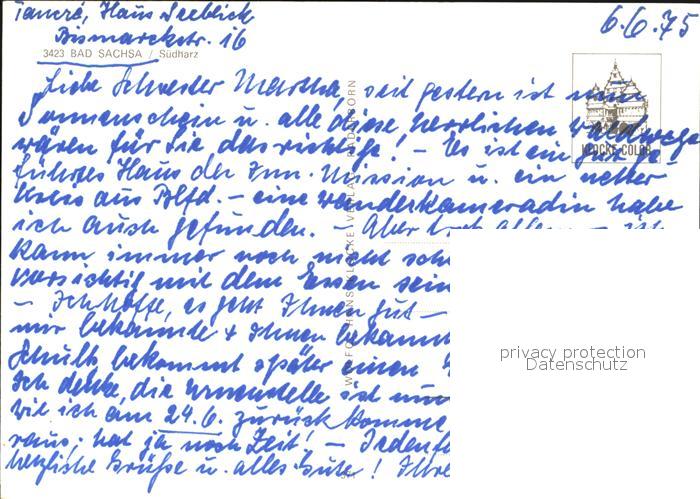 Tancré, Haus Seeblick
6.6.75
Bismarckstr. 16
3423 BAD SACHSA / Südharz
Liebe Schwester Martha, seit gestern ist nun
Sonnenschein u. alle diese herrlichen Waldwege
wären für Sie das richtige! – Es ist ein gut ge
führtes Haus der Inn. Mission u. ein netter
Kreis aus Blfd. – eine Wanderkameradin habe
ich auch gefunden. – Aber trotz allem – ich
kann immer noch nicht
vorsichtig mit dem Essen sein
– Ich hoffe, es geht Ihnen gut –
mir bekannte + Ihnen bekann
Schulh bekommt später einen
Ich denke, die ist nun
wie ich am 24.6. zurück komme
raus; hat ja noch Zeit! – Jedenf
herzliche Grüße u. alles Gute! Ihre
KLOCKE-COLOR
privacy protection
Datenschutz